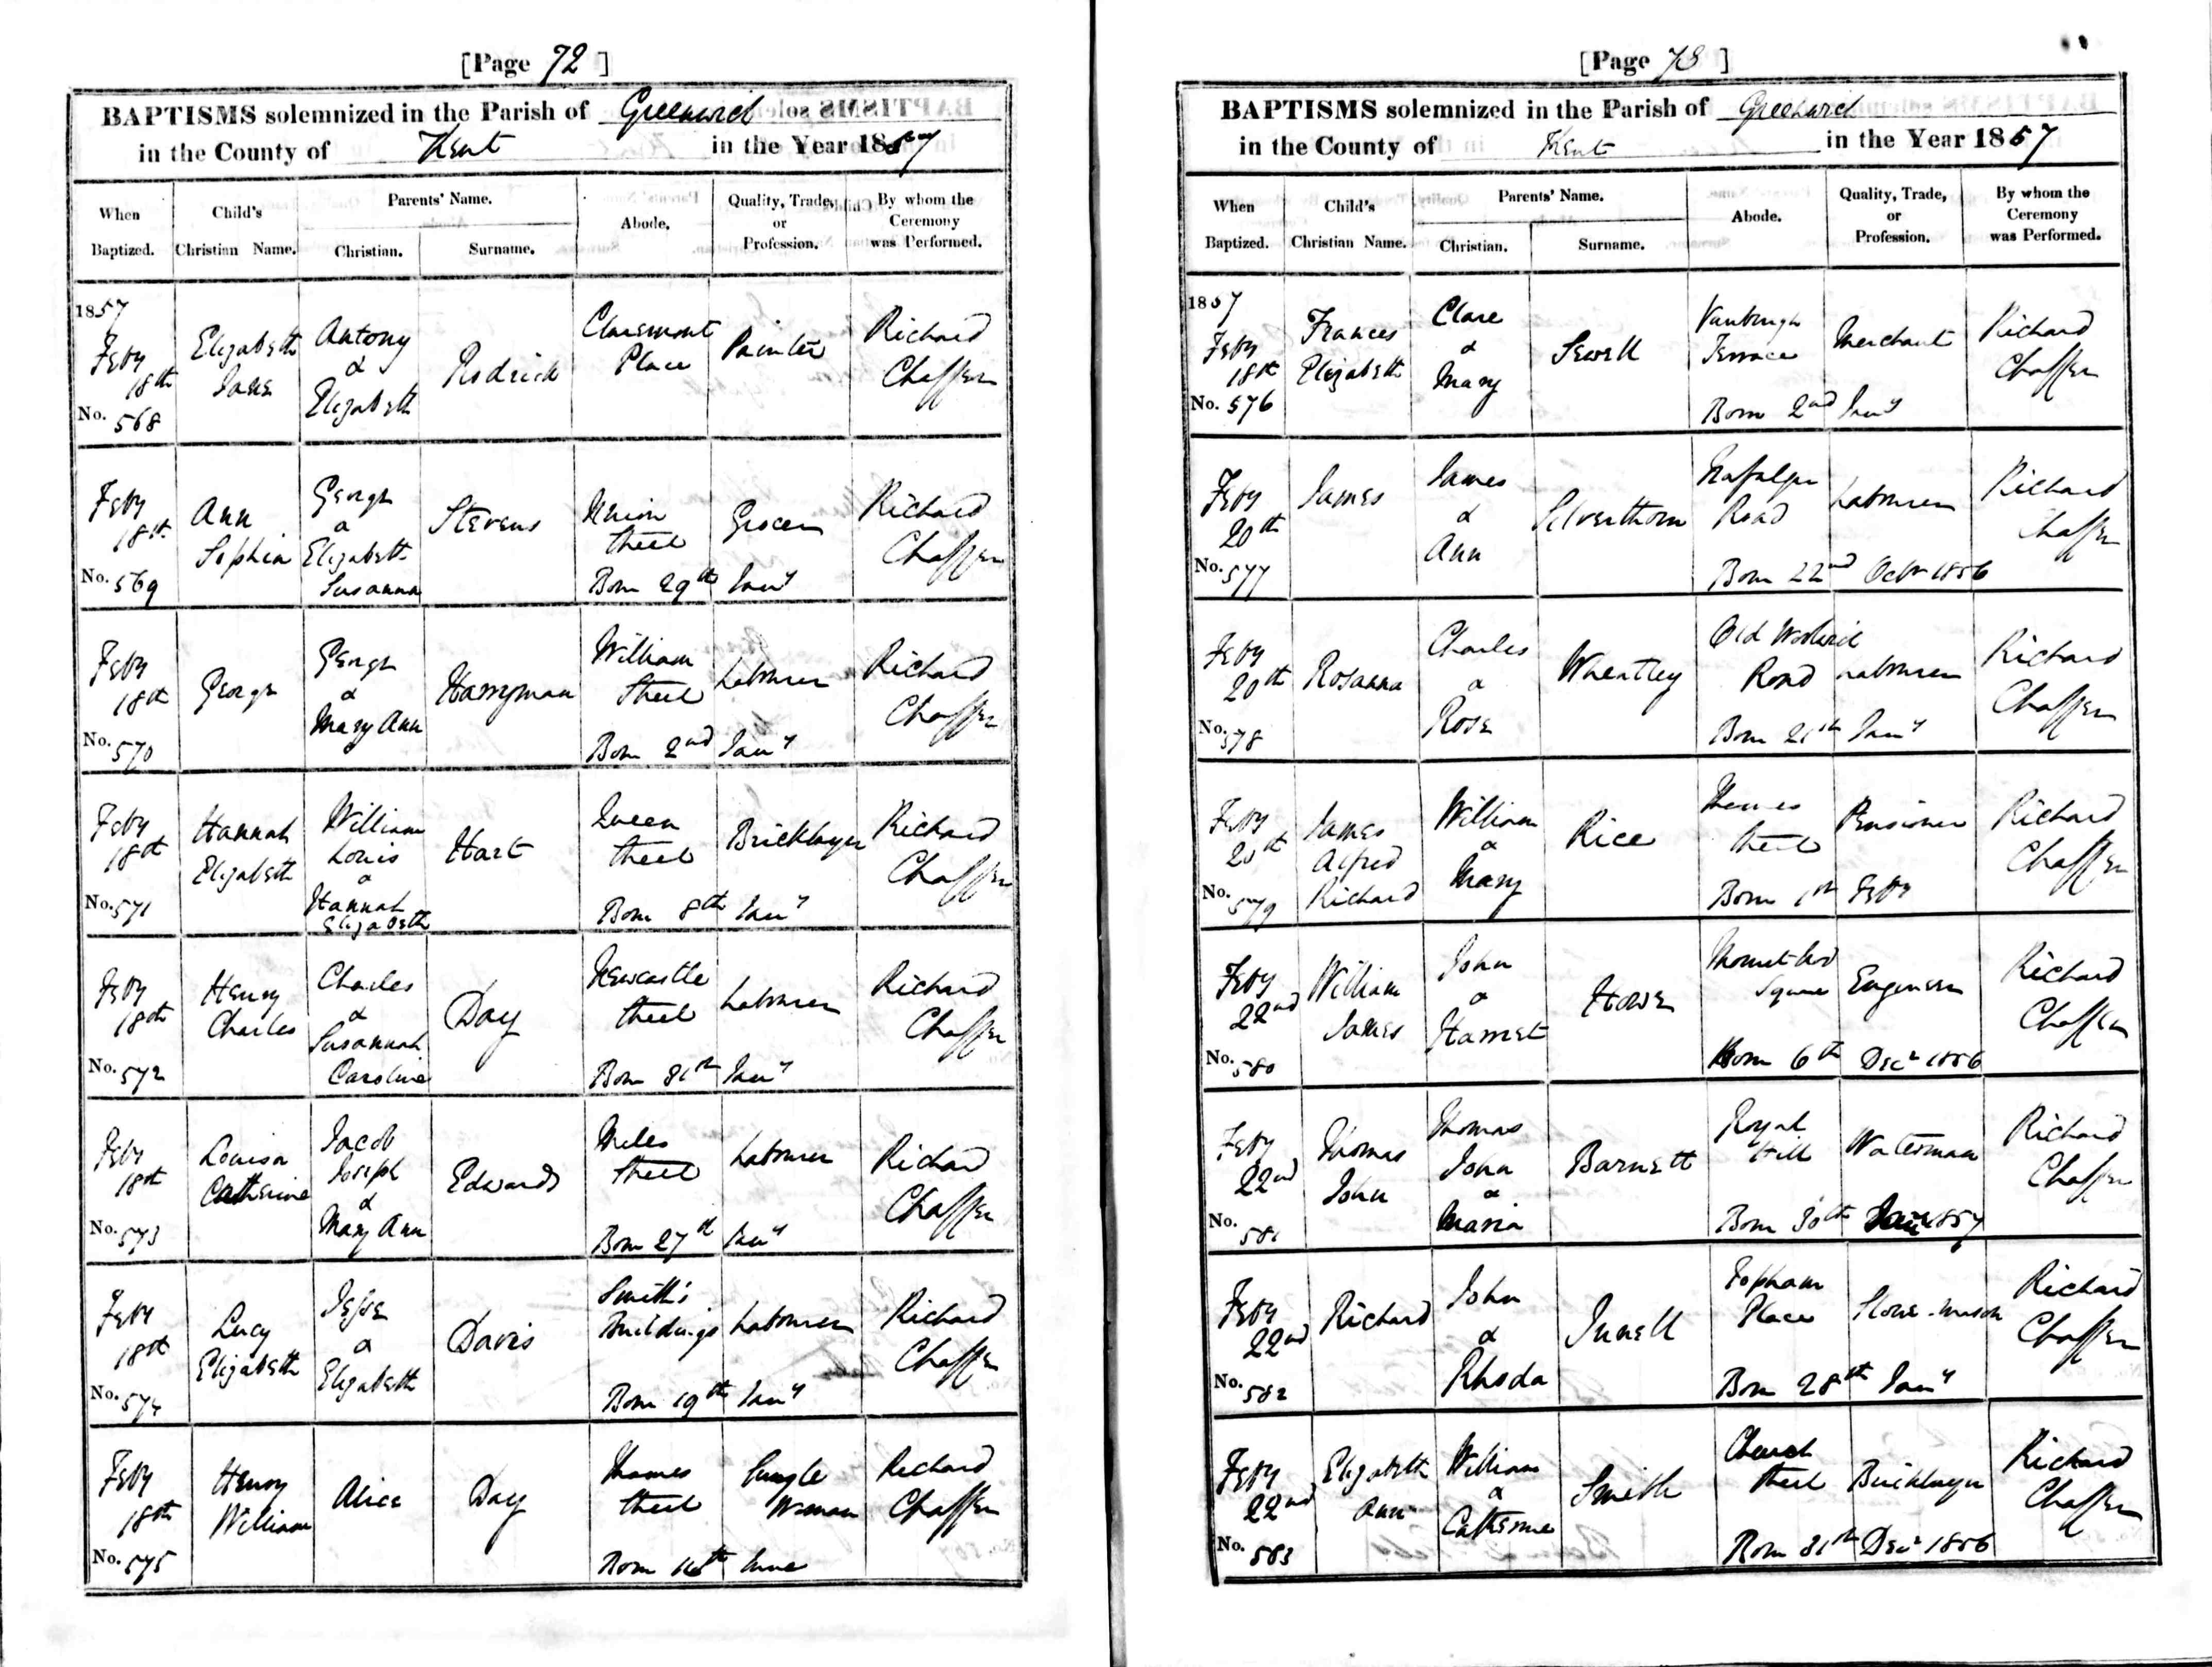 [Page 72]
BAPTISMS solemnized in the Parish of Greenwich
in the County of Kent in the Year 1857
When Baptized.
Child's Christian Name.
Parents' Name.
Christian.
Surname.
Abode.
Quality, Trade, or Profession.
By whom the Ceremony was Performed.
1857
Feby 18th
No. 568
Elizabeth Jane
Antony & Elizabeth
Rodrick
Claremont Place
Painter
Richard Chaffer
Feby 18th
No. 569
Ann Sophia
George & Elizabeth Susanna
Stevens
Union Street
Grocer
Born 29th Jany
Richard Chaffer
Feby 18th
No. 570
George
George & Mary Ann
Harryman
William Street
Labourer
Born 2nd Jany
Richard Chaffer
Feby 18th
No. 571
Hannah Elizabeth
William Louis & Hannah Elizabeth
Hart
Queen Street
Bricklayer
Born 8th Jany
Richard Chaffer
Feby 18th
No. 572
Henry Charles
Charles & Susannah Caroline
Day
Newcastle Street
Labourer
Born 31st Jany
Richard Chaffer
Feby 18th
No. 573
Louisa Catherine
Jacob Joseph & Mary Ann
Edwards
Street
Labourer
Born 27th Jany
Richard Chaffer
Feby 18th
No. 574
Lucy Elizabeth
Jesse & Elizabeth
Davis
Smith's Buildings
Labourer
Born 19th Jany
Richard Chaffer
Feby 18th
No. 575
Henry William
Alice
Day
Thames Street
Single Woman
Born June
Richard Chaffer
[Page 73]
BAPTISMS solemnized in the Parish of Greenwich
in the County of Kent in the Year 1857
When Baptized.
Child's Christian Name.
Parents' Name.
Christian.
Surname.
Abode.
Quality, Trade, or Profession.
By whom the Ceremony was Performed.
1857
Feby 18th
No. 576
Frances Elizabeth
Clare & Mary
Sewell
Vanbrugh Terrace
Merchant
Born 2nd Jany
Richard Chaffer
Feby 20th
No. 577
James
James & Ann
Silverthorn
Trafalgar Road
Labourer
Born 22nd Octr 1856
Richard Chaffer
Feby 20th
No. 578
Rosanna
Charles & Rose
Wheatley
Old Woolwich Road
Labourer
Born 21st Jany
Richard Chaffer
Feby 20th
No. 579
James Alfred Richard
William & Mary
Rice
Thames Street
Pensioner
Born 1st Feby
Richard Chaffer
Feby 22nd
No. 580
William James
John & Harriet
Howe
Square
Engineer
Born 6th Decr 1856
Richard Chaffer
Feby 22nd
No. 581
Thomas John
Thomas John & Maria
Barnett
Royal Hill
Waterman
Born 30th Jany 1857
Richard Chaffer
Feby 22nd
No. 582
Richard
John & Rhoda
Topham Place
Stone-mason
Born 28th Jany
Richard Chaffer
Feby 22nd
No. 583
Elizabeth Ann
William & Catherine
Smith
Church Street
Bricklayer
Born 31st Decr 1856
Richard Chaffer